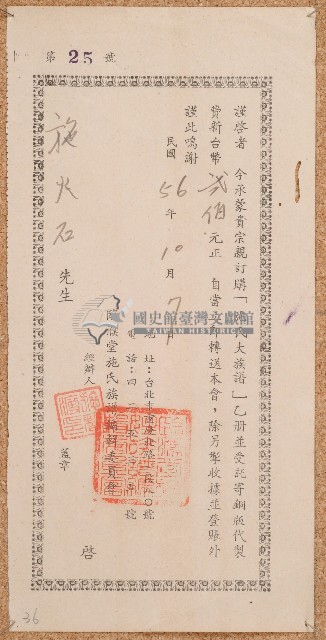 第 25 號
謹啓者 今承蒙貴宗親訂購「施氏大族譜」乙冊並受託寄銅版代製
費新台幣 貳佰 元正 自當 轉送本會,除另掣收據並登賬外
謹此鳴謝
民國 56 年 10 月 7 日
地 址:台北市 路
電 話:四 號
堂施氏族譜編輯委員會
經辦人 蓋章
啓
施火石 先生
國史館臺灣文獻館
36